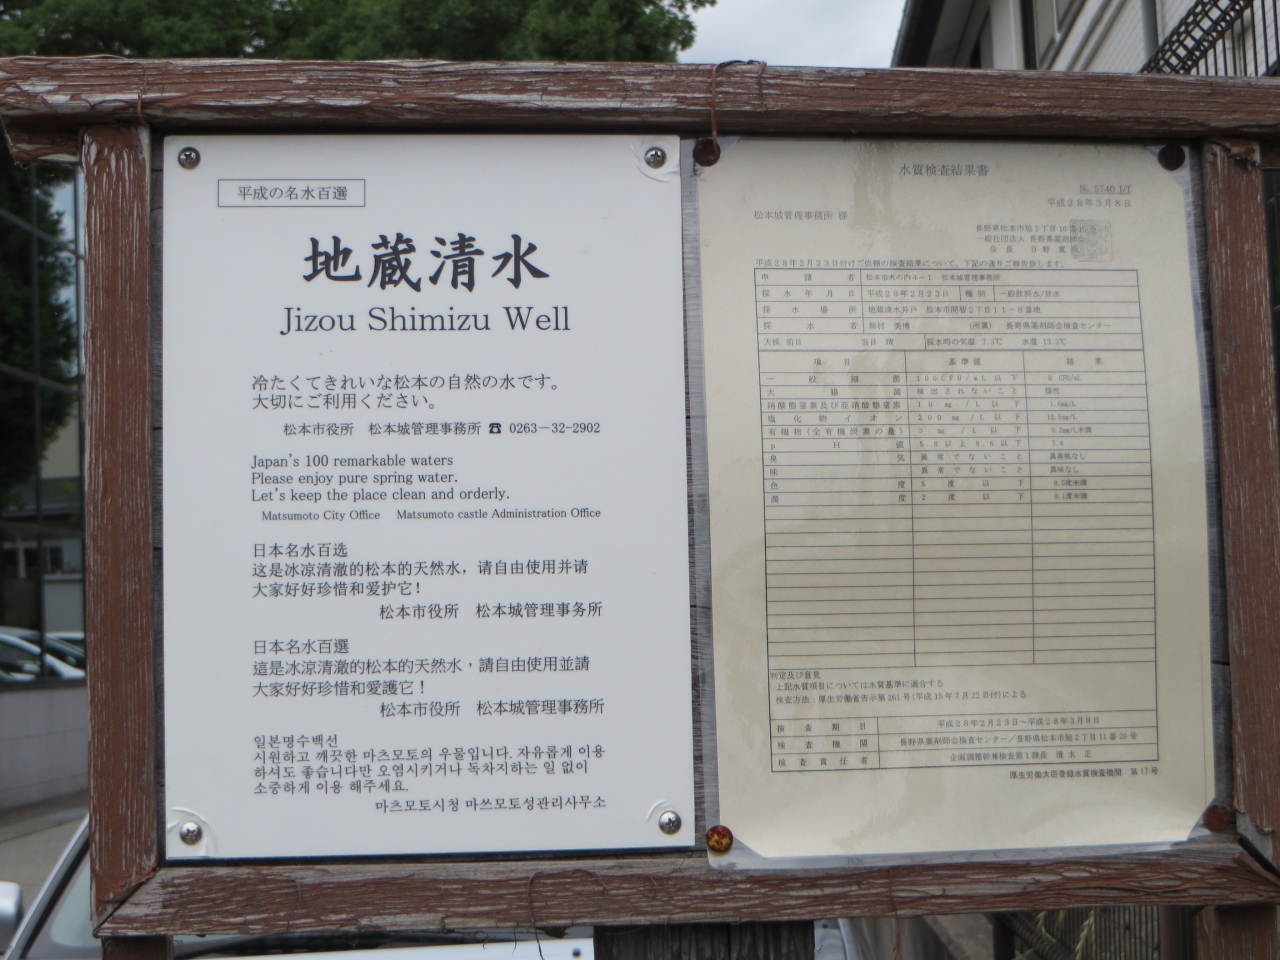 平成の名水百選
地蔵清水
Jizou Shimizu Well
冷たくてきれいな松本の自然の水です。
大切にご利用ください。
松本市役所 松本城管理事務所 ☎ 0263－32-2902
Japan's 100 remarkable waters
Please enjoy pure spring water.
Let's keep the place clean and orderly.
Matsumoto City Office Matsumoto castle Administration Office
日本名水百选
这是冰凉清澈的松本的天然水，请自由使用并请
大家好好珍惜和爱护它！
松本市役所 松本城管理事务所
日本名水百選
這是冰涼清澈的松本的天然水，請自由使用並請
大家好好珍惜和愛護它！
松本市役所 松本城管理事務所
일본명수백선
시원하고 깨끗한 마츠모토의 우물입니다. 자유롭게 이용
하셔도 좋습니다만 오염시키거나 독차지하는 일 없이
소중하게 이용 해주세요.
마츠모토시청 마쓰모토성관리사무소
水質検査結果書
No. 5740 1/1
平成28年3月8日
松本城管理事務所 様
長野県松本市旭2丁目10番15号
一般社団法人 長野県薬剤師会
会長 日野
平成28年2月23日付けご依頼の検査結果について、下記の通りご報告致します。
申請者 松本市丸の内4-1 松本城管理事務所
採水年月日 平成28年2月23日 種別 一般飲料水/井水
採水場所 地蔵清水井戸 松本市開智2丁目11-8番地
採水者 (所属) 長野県薬剤師会検査センター
天候 前日 当日 晴 採水時の気温 7.3℃ 水温 13.3℃
項目 基準値 結果
一般細菌 100CFU/mL以下 0 CFU/mL
大腸菌 検出されないこと 陰性
硝酸態窒素及び亜硝酸態窒素 10 mg/L以下 1.6mg/L
塩化物イオン 200 mg/L以下 12.5mg/L
有機物(全有機炭素の量) 3 mg/L以下 0.3mg/L未満
pH値 5.8以上8.6以下 7.4
臭気 異常でないこと 異臭気なし
味 異常でないこと 異味なし
色度 5度以下 0.5度未満
濁度 2度以下 0.1度未満
判定及び意見
上記水質項目については水質基準に適合する
検査方法：厚生労働省告示第261号(平成15年7月22日付)による
検査期日 平成28年2月23日～平成28年3月8日
検査機関 長野県薬剤師会検査センター/長野県松本市旭2丁目11番20号
検査責任者 企画調整幹兼検査第1課長 清水 正
厚生労働大臣登録水質検査機関 第17号